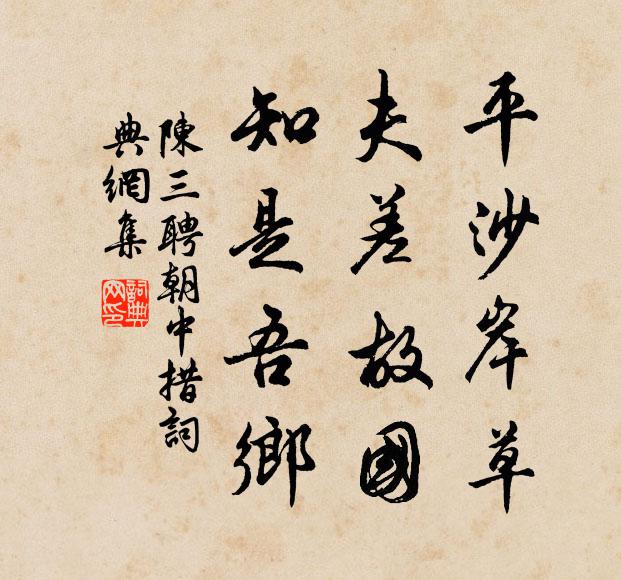 平沙岸草
夫差故國
知是吾鄉
陳三聘朝中措詞
典網集
詞典網印